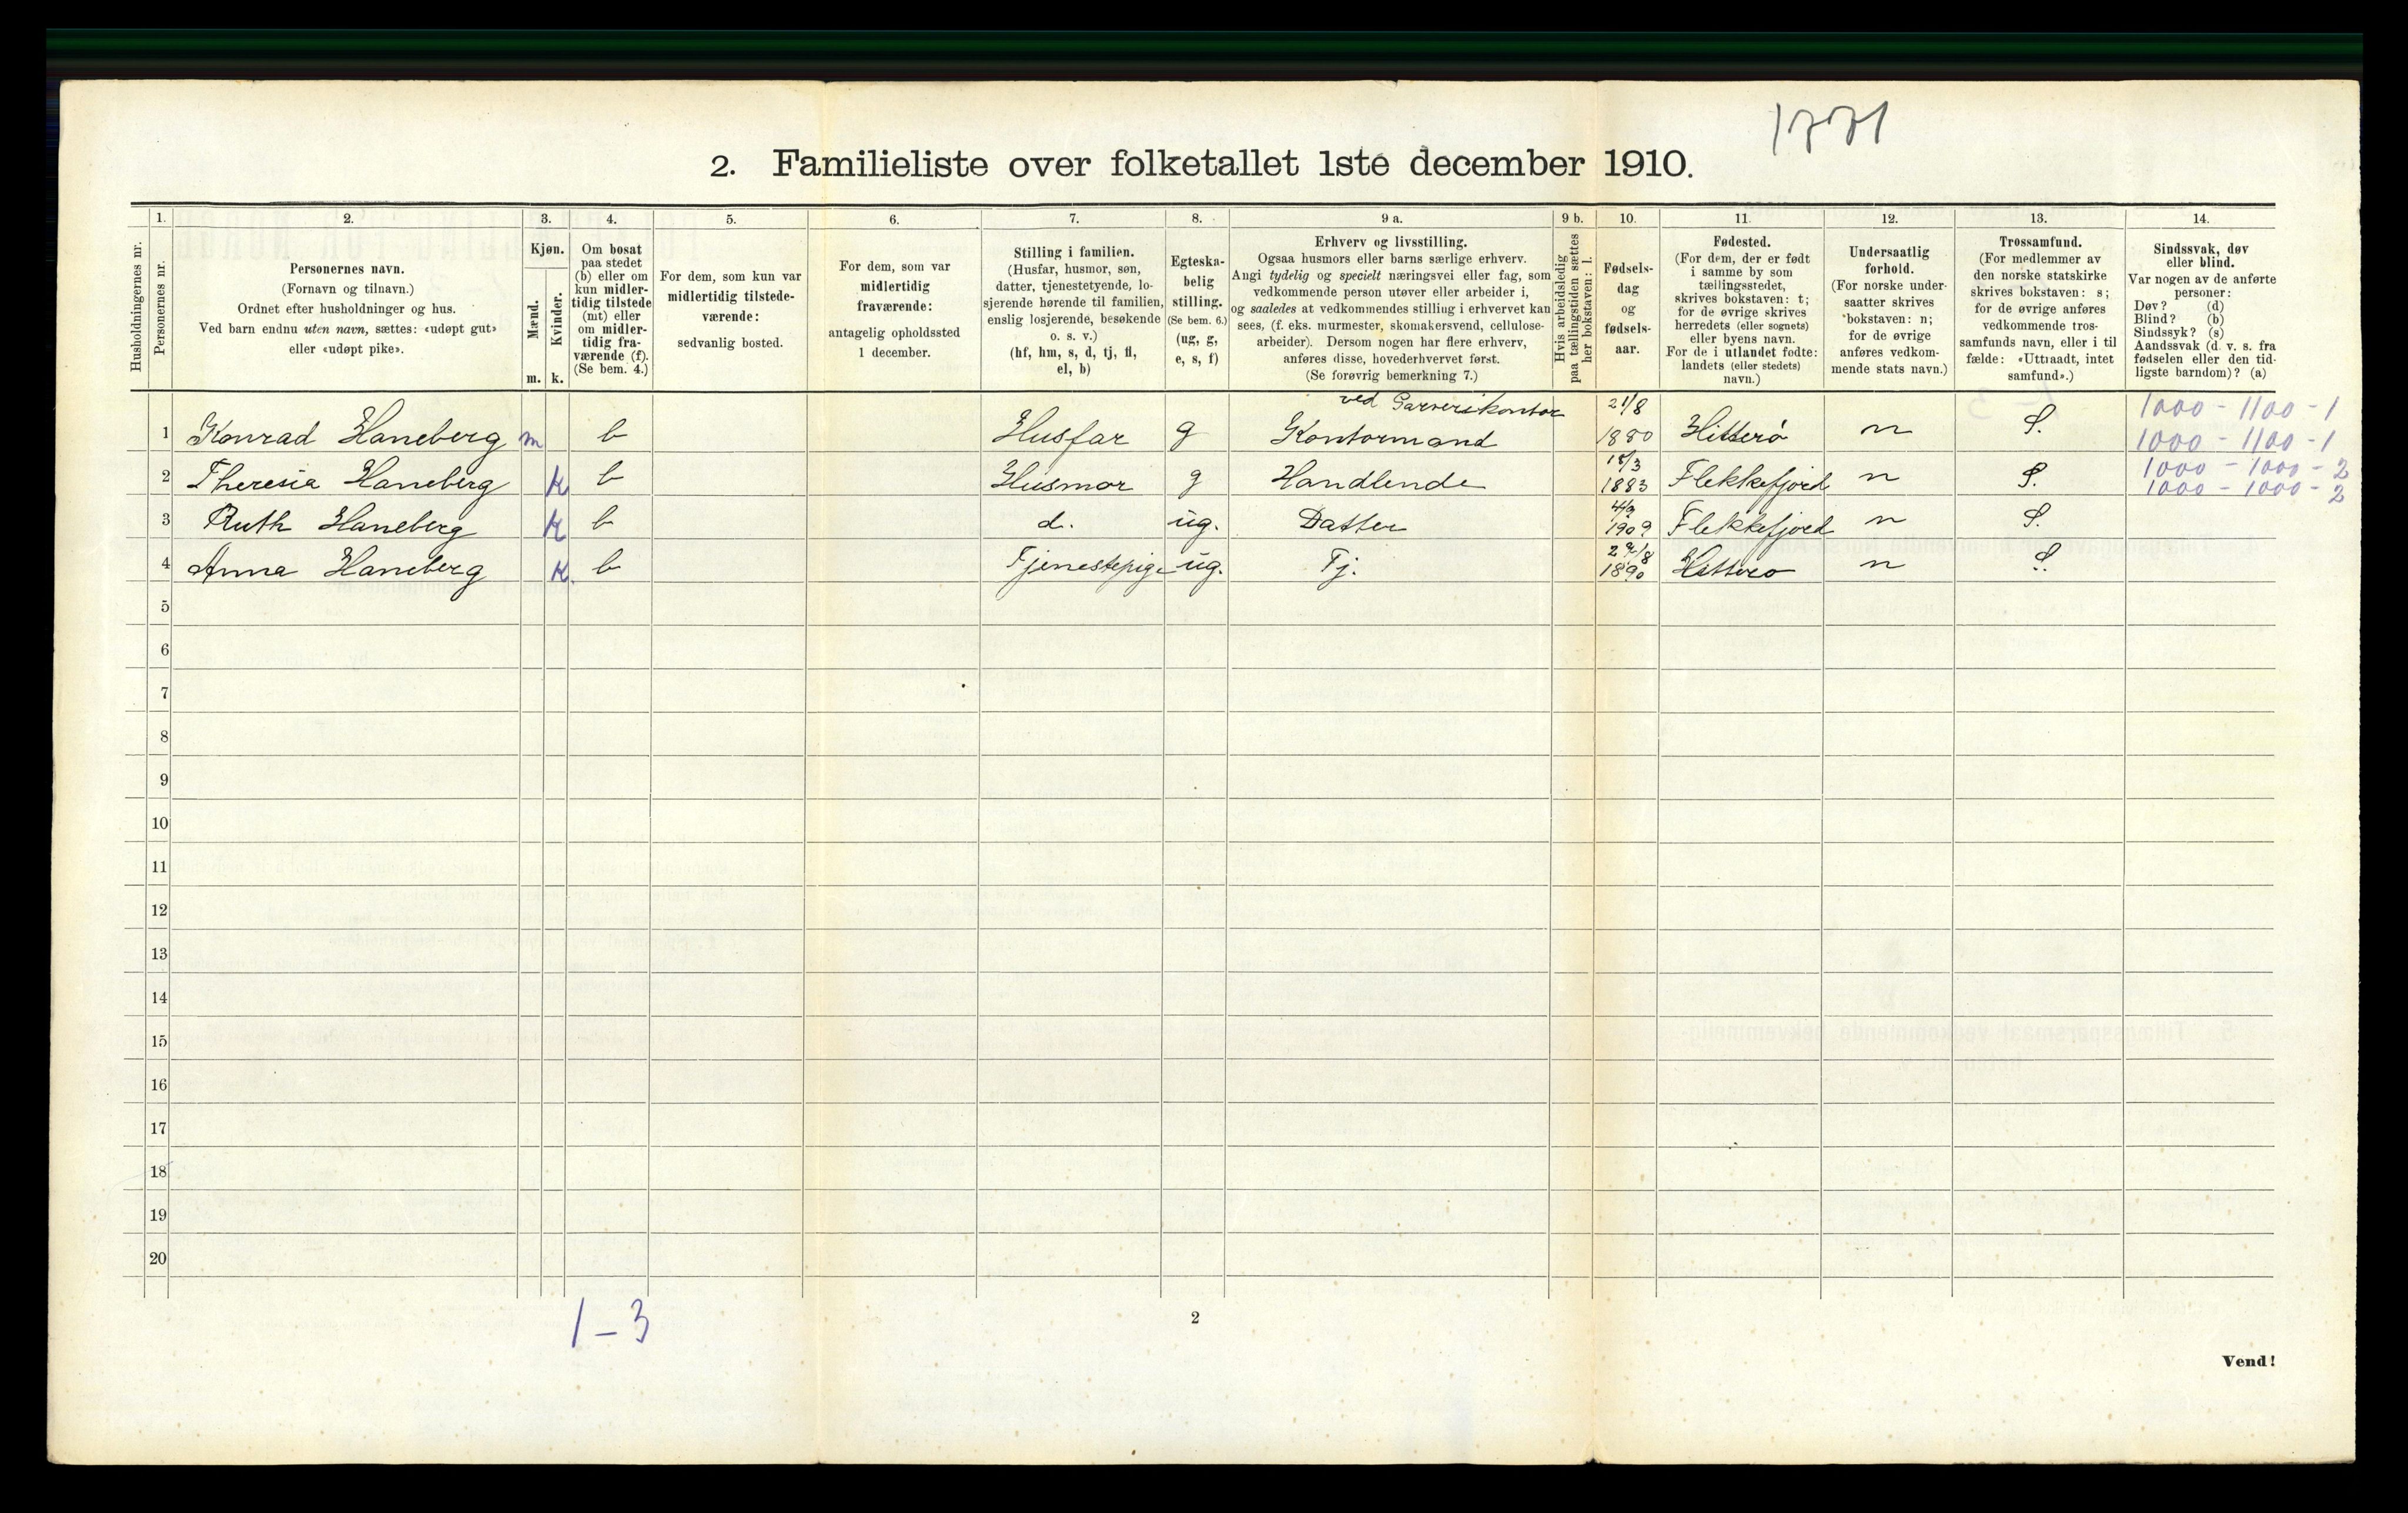 1771
2. Familieliste over folketallet 1ste december 1910.
1. 2. 3. 4. 5. 6. 7. 8. 9 a. 9 b. 10. 11. 12. 13. 14.
Husholdningernes nr.
Personernes nr.
Personernes navn.
(Fornavn og tilnavn.)
Ordnet efter husholdninger og hus.
Ved barn endnu uten navn, sættes: «udøpt gut»
eller «udøpt pike».
Kjøn.
Mænd.
Kvinder.
m. k.
Om bosat
paa stedet
(b) eller om
kun midler-
tidig tilstede
(mt) eller
om midler-
tidig fra-
værende (f).
(Se bem. 4.)
For dem, som kun var
midlertidig tilstede-
værende:
sedvanlig bosted.
For dem, som var
midlertidig
fraværende:
antagelig opholdssted
1 december.
Stilling i familien.
(Husfar, husmor, søn,
datter, tjenestetyende, lo-
sjerende hørende til familien,
enslig losjerende, besøkende
o. s. v.)
(hf, hm, s, d, tj, fl,
el, b)
Egteska-
belig
stilling.
(Se bem. 6.)
(ug, g,
e, s, f)
Erhverv og livsstilling.
Ogsaa husmors eller barns særlige erhverv.
Angi tydelig og specielt næringsvei eller fag, som
vedkommende person utøver eller arbeider i,
og saaledes at vedkommendes stilling i erhvervet kan
sees, (f. eks. murmester, skomakersvend, cellulose-
arbeider). Dersom nogen har flere erhverv,
anføres disse, hovederhvervet først.
(Se forøvrig bemerkning 7.)
Hvis arbeidsledig
paa tællingstiden sættes
her bokstaven: l.
Fødsels-
dag
og
fødsels-
aar.
Fødested.
(For dem, der er født
i samme by som
tællingsstedet,
skrives bokstaven: t;
for de øvrige skrives
herredets (eller sognets)
eller byens navn.
For de i utlandet fødte:
landets (eller stedets)
navn.)
Undersaatlig
forhold.
(For norske under-
saatter skrives
bokstaven: n;
for de øvrige
anføres vedkom-
mende stats navn.)
Trossamfund.
(For medlemmer av
den norske statskirke
skrives bokstaven: s;
for de øvrige anføres
vedkommende tros-
samfunds navn, eller i til
fælde: «Uttraadt, intet
samfund».)
Sindssvak, døv
eller blind.
Var nogen av de anførte
personer:
Døv? (d)
Blind? (b)
Sindssyk? (s)
Aandssvak (d. v. s. fra
fødselen eller den tid-
ligste barndom)? (a)
ved Garverikontor 21/8 1000 - 1100 - 1
1 Konrad Haneberg m b Husfar g Kontormand 1880 Hitterø n S. 1000 - 1100 - 1
1000 - 1000 - 2
2 Theresia Haneberg k b Husmor g Handlende 1883 Flekkefjord n S. 1000 - 1000 - 2
3 Ruth Haneberg k b d. ug. Datter 1909 Flekkefjord n S.
4 Anna Haneberg k. b Tjenestepige ug. Tj. 1890 Hitterø n S.
5
6
7
8
9
10
11
12
13
14
15
16
17
18
19
20
1 - 3
2
Vend!